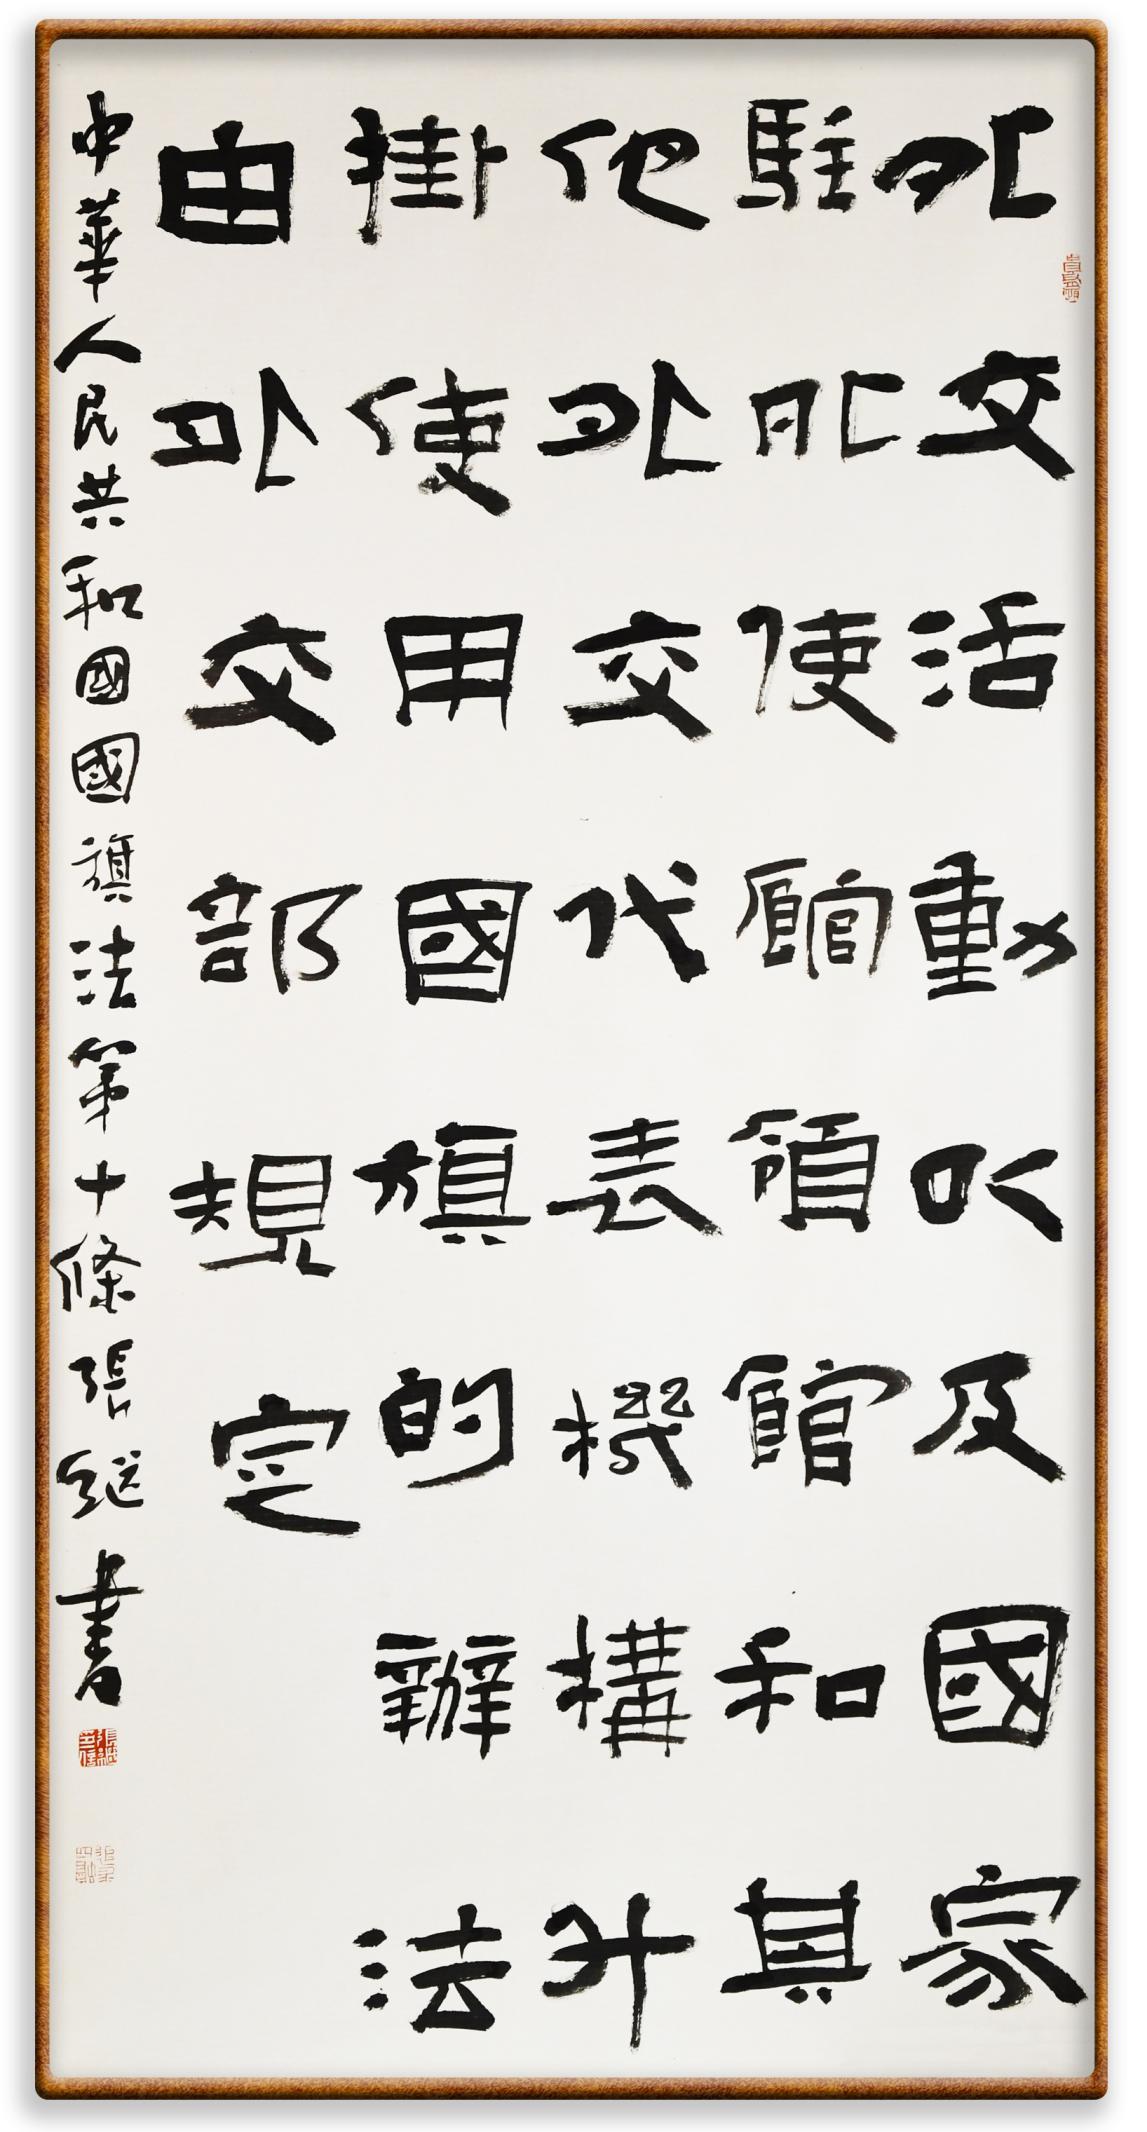 外交活動以及國家
駐外使館領館和其
他外交代表機構升
掛使用國旗的辦法
由外交部規定
中華人民共和國國旗法第十條張繼書